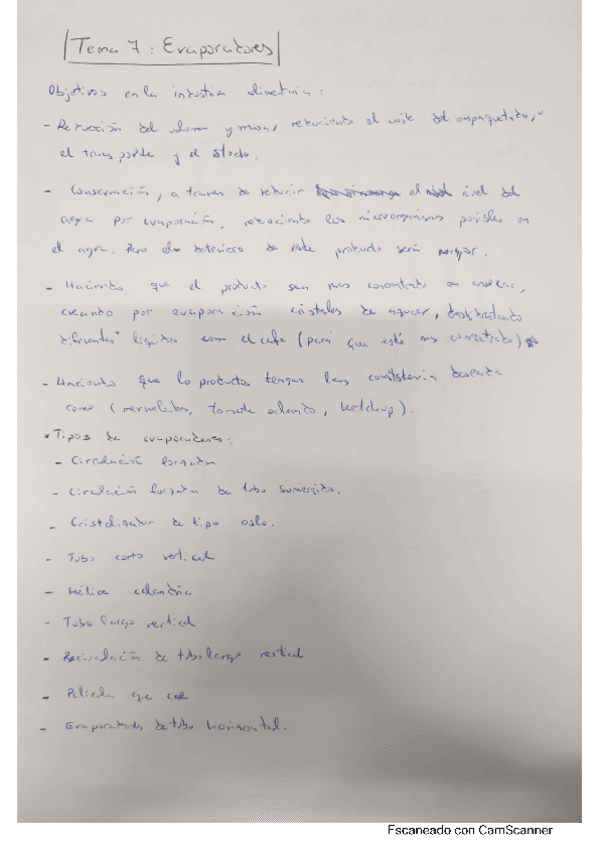 Tema 7: Evaporadores
Objetivos en la industria alimentaria:
- Reducción del volumen y masa, reduciendo el coste del empaquetado,
el transporte y el stock.
- Conservación, a traves de reducir el nivel del
agua por evaporación, los microorganismos posibles en
el agua. Pero el deterioro de este producto sería mayor.
- Haciendo que el producto sea mas concentrado en azúcar,
creando por evaporación cristales de azucar, deshidratando
diferentes líquidos como el cafe (para que esté mas concentrado)
- Haciendo que lo productos tengan la consistencia deseada
como (mermeladas, tomate, ketchup).
* Tipos de evaporadores:
- Circulación forzada
- Circulación forzada de tubo sumergido.
- Cristalizador de tipo oslo.
- Tubo corto vertical
- Hélice calandria
- Tubo largo vertical
- Recirculación de tubo largo vertical
- Pelicula que cae
- Evaporadores de tubo horizontal.
Escaneado con CamScanner